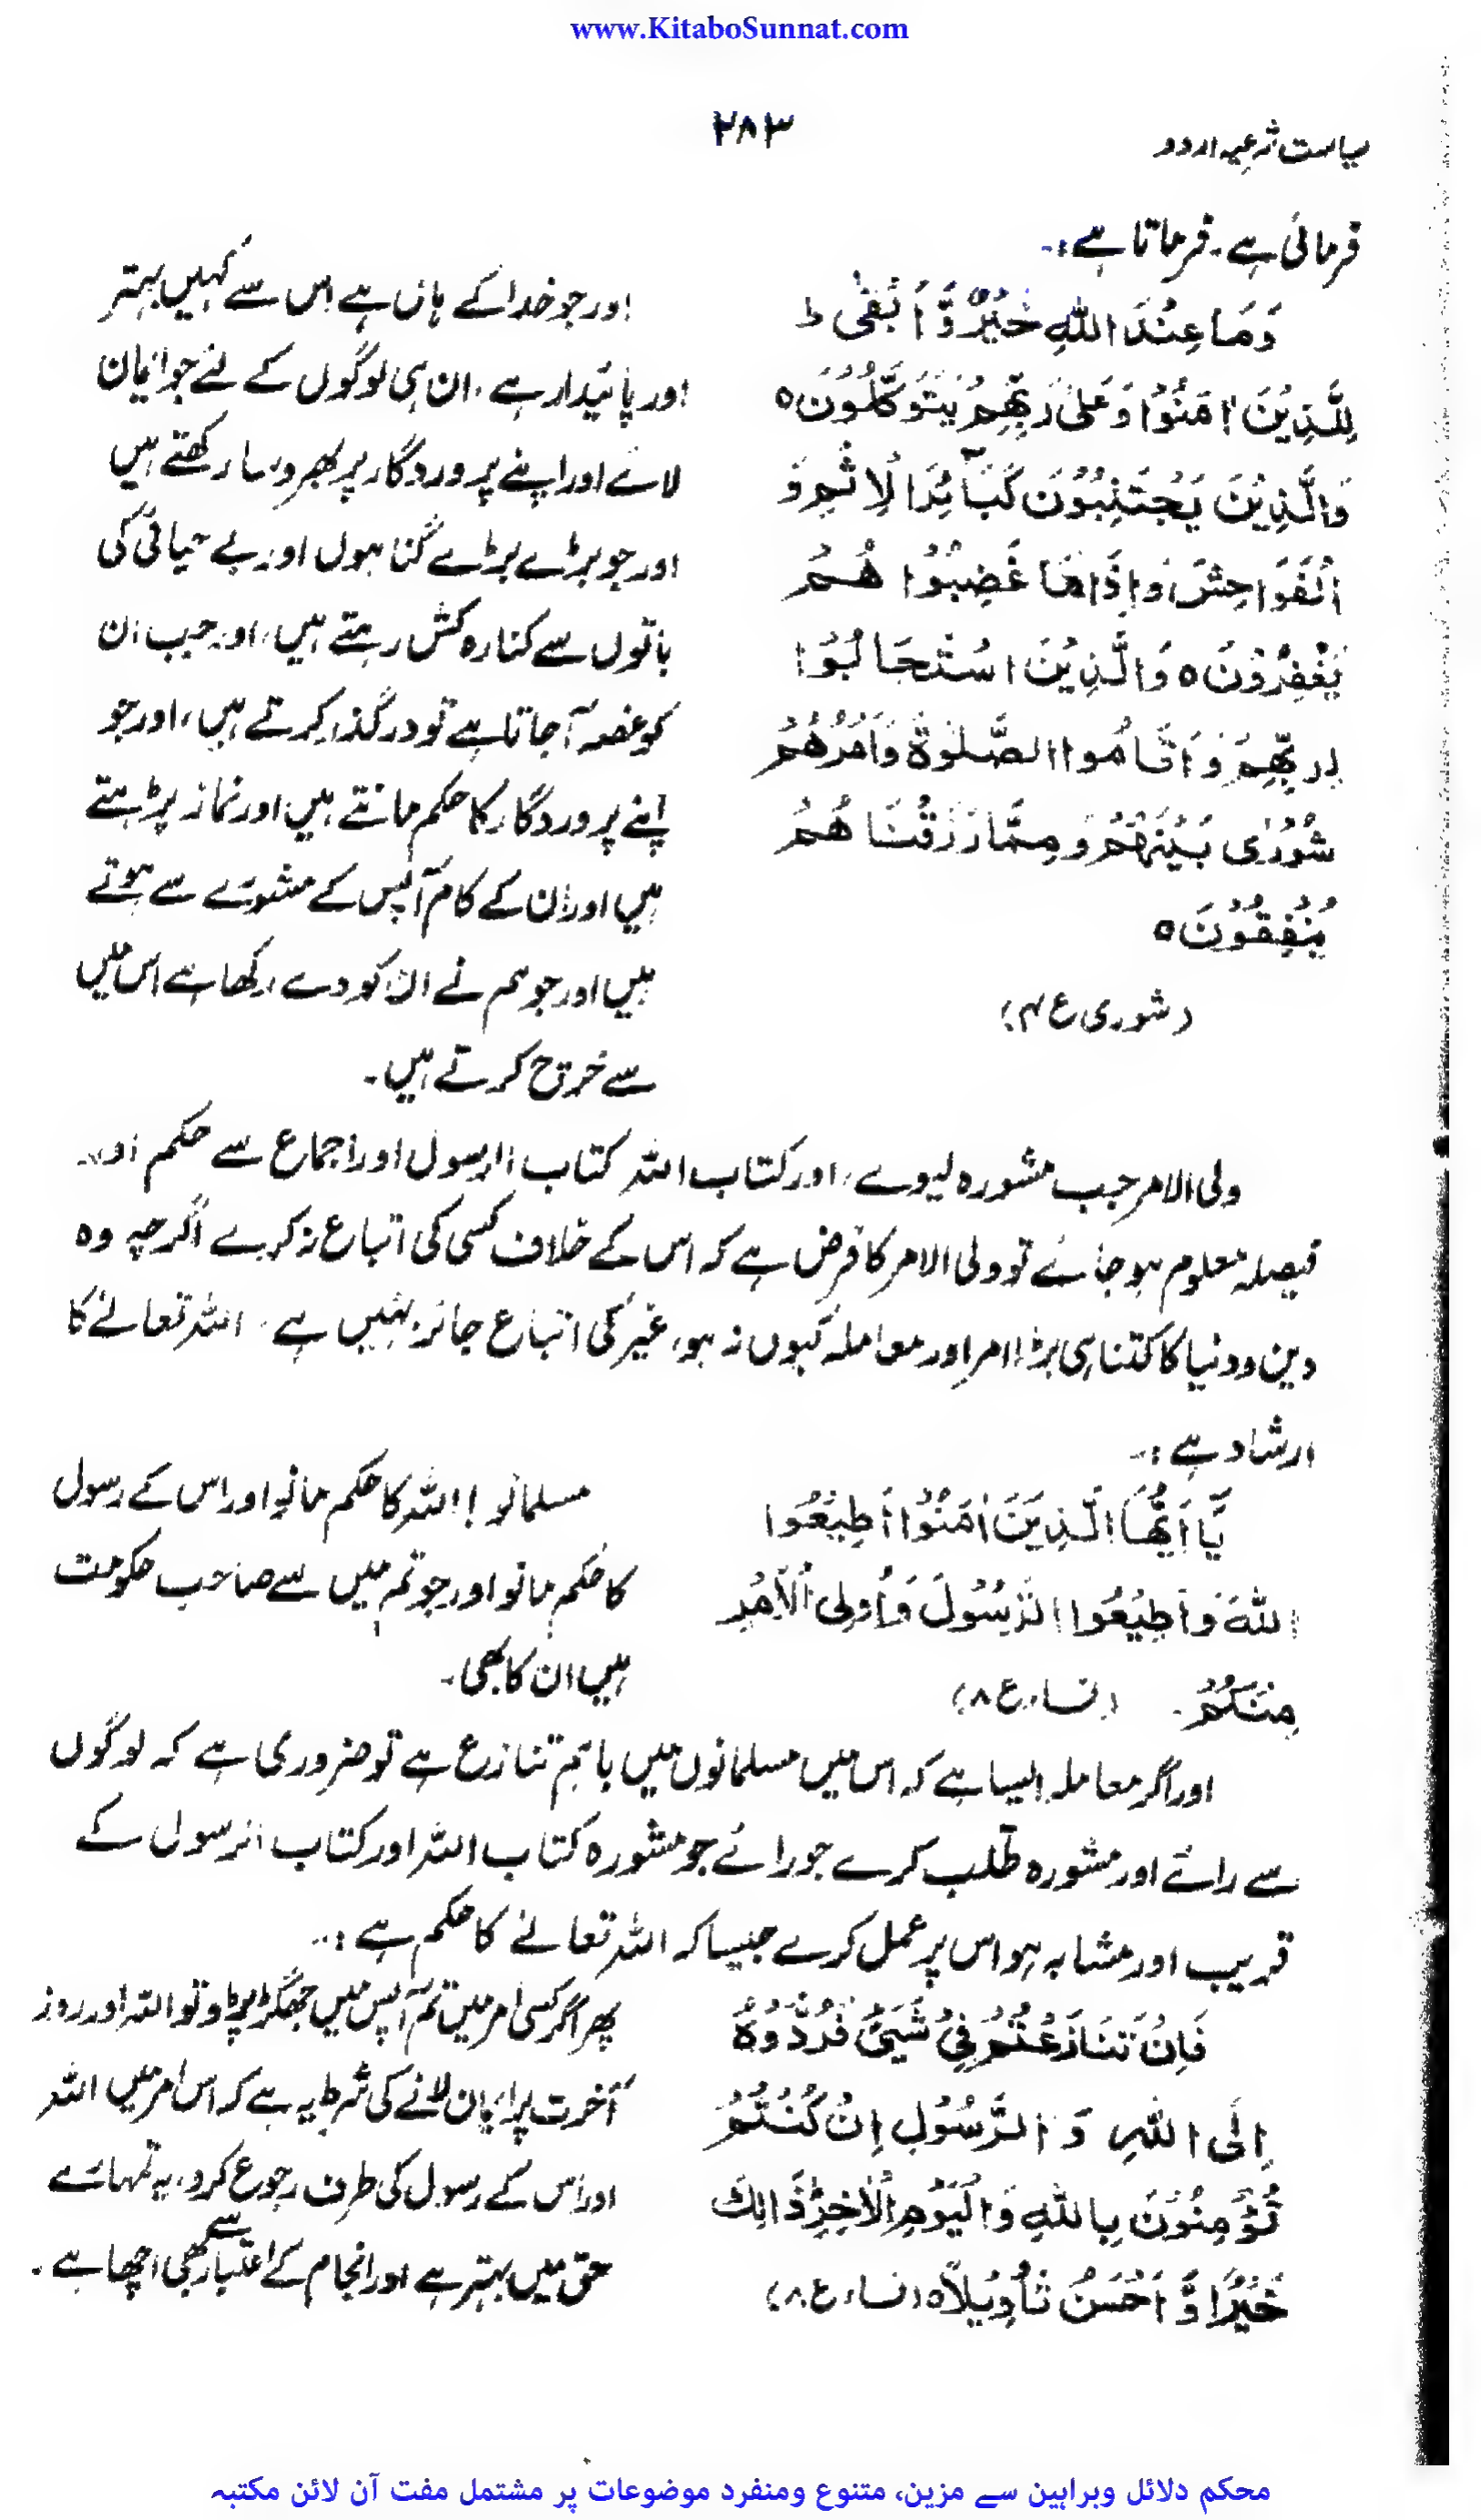 www.KitaboSunnat.com
سیاست شرعیہ اردو
۲۸۳
فرمائی ہے۔ فرماتا ہے:۔
وَمَا عِنْدَ اللّٰهِ خَيْرٌ وَّ اَبْقٰى ط
لِلَّذِيْنَ اٰمَنُوْا وَعَلٰى رَبِّهِمْ يَتَوَكَّلُوْنَ ه
وَالَّذِيْنَ يَجْتَنِبُوْنَ كَبَآئِرَ الْاِثْمِ وَ
الْفَوَاحِشَ وَاِذَا مَا غَضِبُوْا هُمْ
يَغْفِرُوْنَ ه وَالَّذِيْنَ اسْتَجَابُوْا
لِرَبِّهِمْ وَاَقَامُوا الصَّلٰوةَ وَاَمْرُهُمْ
شُوْرٰى بَيْنَهُمْ وَمِمَّا رَزَقْنَاهُمْ
يُنْفِقُوْنَ ه
(شوریٰ ع ۴)
اور جو خدا کے ہاں ہے اس سے کہیں بہتر
اور پائیدار ہے، ان ہی لوگوں کے لئے جو ایمان
لائے اور اپنے پروردگار پر بھروسا رکھتے ہیں
اور جو بڑے بڑے گناہوں اور بے حیائی کی
باتوں سے کنارہ کش رہتے ہیں، اور جب ان
کو غصہ آ جاتا ہے تو درگذر کرتے ہیں، اور جو
اپنے پروردگار کا حکم مانتے ہیں اور نماز پڑہتے
ہیں اور ان کے کام آپس کے مشورے سے ہوتے
ہیں اور جو ہم نے ان کو دے رکھا ہے اس میں
سے خرچ کرتے ہیں۔
ولی الامر جب مشورہ لیوے، اور کتاب اللہ کتاب الرسول اور اجماع سے حکم اور
فیصلہ معلوم ہو جائے تو ولی الامر کا فرض ہے کہ اس کے خلاف کسی کی اتباع نہ کرے اگرچہ وہ
دین و دنیا کا کتنا ہی بڑا امر اور معاملہ کیوں نہ ہو، غیر کی اتباع جائز نہیں ہے۔ اللہ تعالےٰ کا
ارشاد ہے:۔
يَّا اَيُّهَا الَّذِيْنَ اٰمَنُوْا اَطِيْعُوا
اللّٰهَ وَاَطِيْعُوا الرَّسُوْلَ وَاُولِى الْاَمْرِ
مِنْكُمْ۔ (نساء ع ۸)
مسلمانو! اللہ کا حکم مانو اور اس کے رسول
کا حکم مانو اور جو تم میں سے صاحب حکومت
ہیں ان کا بھی۔
اور اگر معاملہ ایسا ہے کہ اس میں مسلمانوں میں باہم تنازع ہے تو ضروری ہے کہ لوگوں
سے رائے اور مشورہ طلب کرے جو رائے جو مشورہ کتاب اللہ اور کتاب الرسول کے
قریب اور مشابہ ہو اس پر عمل کرے جیسا کہ اللہ تعالےٰ کا حکم ہے:۔
فَاِنْ تَنَازَعْتُمْ فِيْ شَيْئٍ فَرُدُّوْهُ
اِلَى اللّٰهِ وَ الرَّسُوْلِ اِنْ كُنْتُمْ
تُؤْمِنُوْنَ بِاللّٰهِ وَالْيَوْمِ الْاٰخِرِ ذَالِكَ
خَيْرًا وَّ اَحْسَنُ تَأْوِيْلًا ه (نساء ع ۸)
پھر اگر کسی امر میں تم آپس میں جھگڑ پڑو تو اللہ اور روز
آخرت پر ایمان لانے کی شرط یہ ہے کہ اس امر میں اللہ
اور اس کے رسول کی طرف رجوع کرو، یہ تمہارے
حق میں بہتر ہے اور انجام کے اعتبار سے بھی اچھا ہے۔
محکم دلائل وبراہین سے مزین، متنوع ومنفرد موضوعات پر مشتمل مفت آن لائن مکتبہ